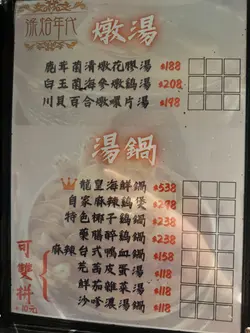 燉湯
鹿茸菌清燉花膠湯 $188
白玉菌海參燉鷄湯 $208
川貝百合燉螺片湯 $198
湯鍋
龍皇海鮮鍋 $538
自家麻辣鷄煲 $278
特色椰子鷄鍋 $238
藥膳醉鷄鍋 $238
麻辣台式鴨血鍋 $158
芫茜皮蛋湯 $118
鮮茄雜菜湯 $118
沙嗲濃湯鍋 $118
可雙拼
+10元